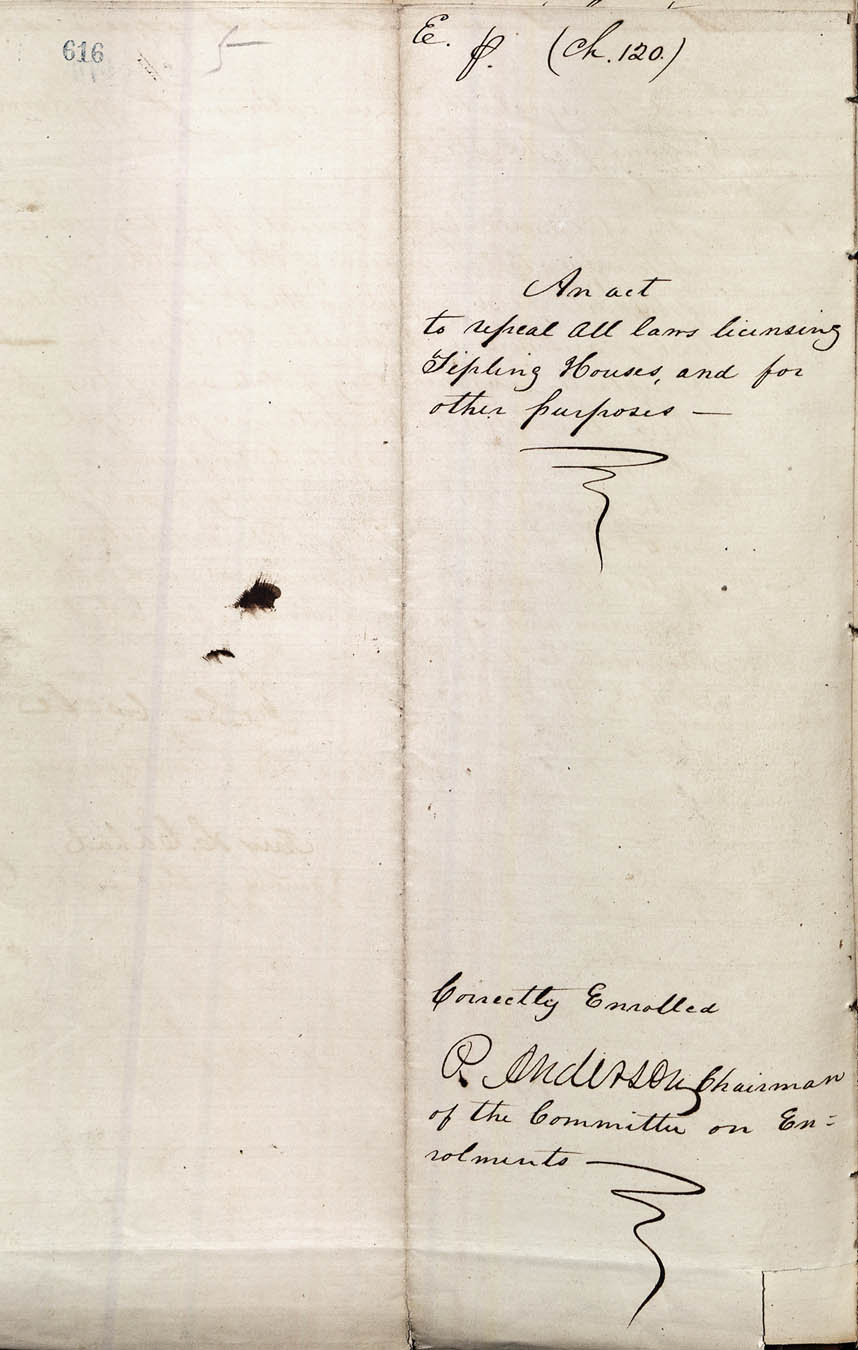 616
5
E. P. (Ch. 120.)
An act
to repeal all laws licensing
Tipling Houses, and for
other purposes —
Correctly Enrolled
R. Anderson, Chairman
of the Committee on En=
rolments —